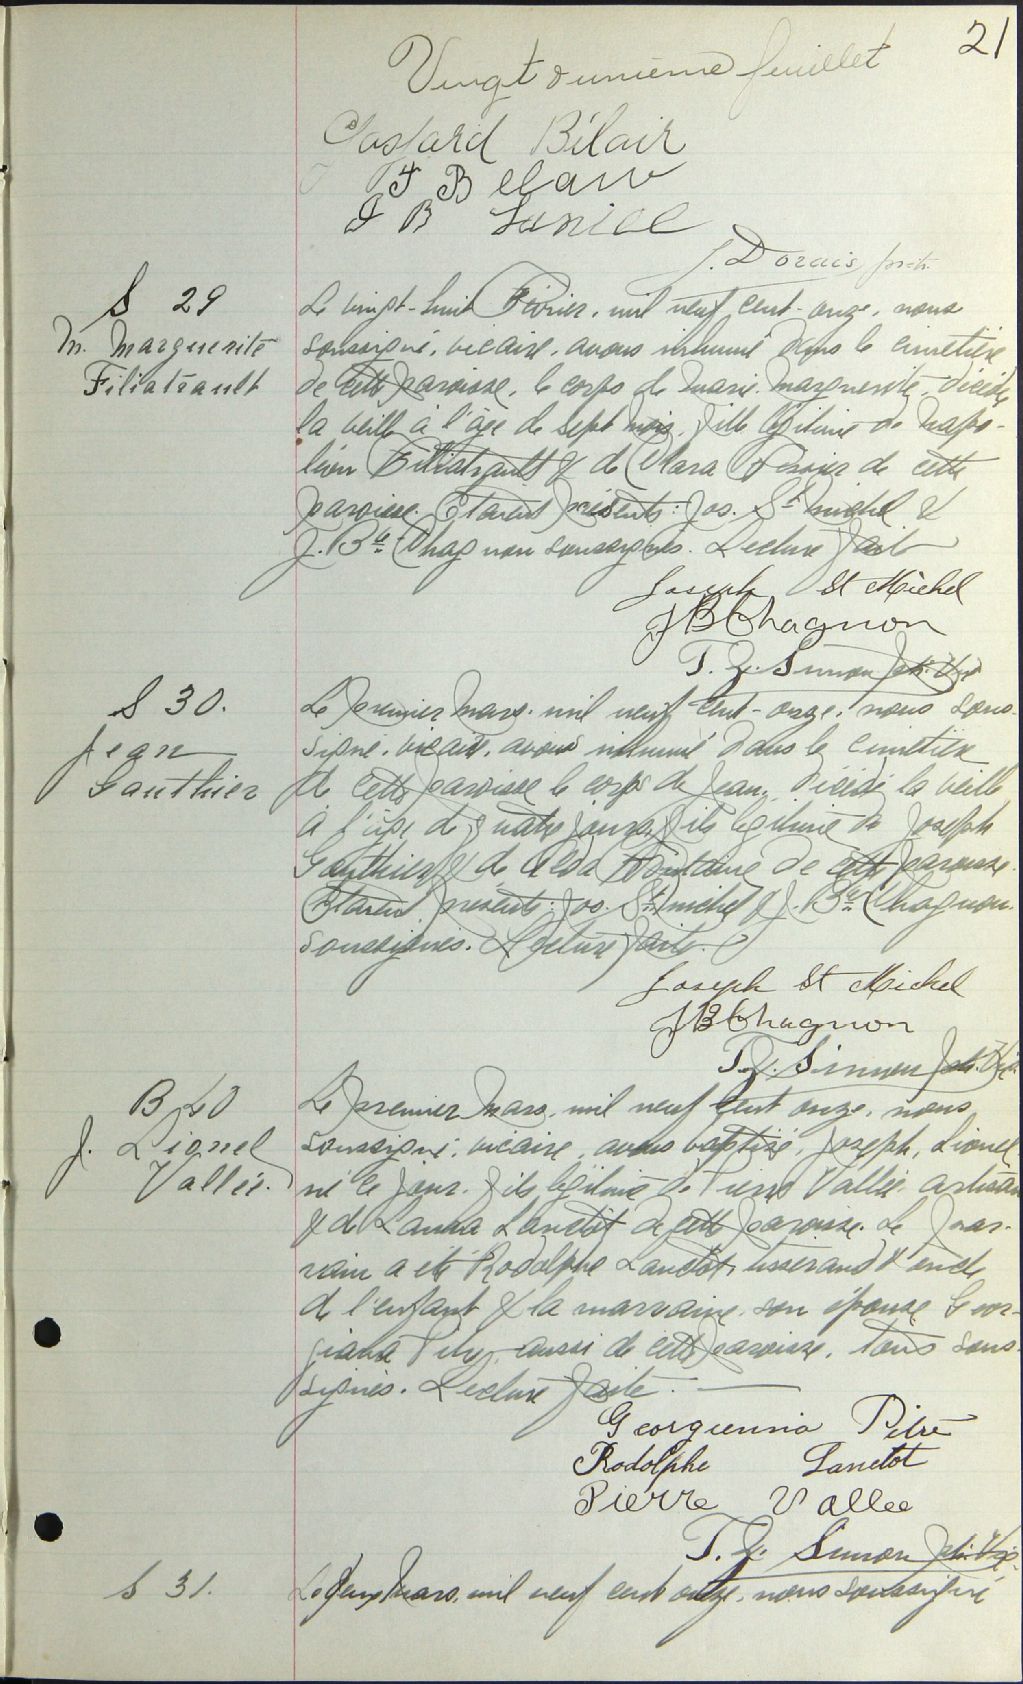 21
Vingt & unième feuillet
Gaspard Bélair
F B
J B
J. Dorais, ptre.
S 29
M. Marguerite
Filiatrault
Le vingt-huit Février, mil neuf cent-onze, nous
soussigné, vicaire, avons inhumé dans le cimetière
de cette paroisse, le corps de Marie Marguerite, décédée
la veille à l'âge de sept mois, fille légitime de Napo-
léon Filiatrault & de Clara Perrier de cette
paroisse. Etaient présents: Jos. St Michel &
J. Bte Chagnon soussignés. Lecture faite
Joseph St Michel
J B Chagnon
T. Z. Simon ptr. Vic.
S 30.
Jean
Gauthier
Le premier Mars, mil neuf cent-onze, nous sous-
signé, vicaire, avons inhumé dans le cimetière
de cette paroisse le corps de Jean, décédé la veille
à l'âge de quatre jours, fils légitime de Joseph
Gauthier & de Alda Fontaine de cette paroisse.
Etaient présents: Jos. St Michel & J. Bte Chagnon
soussignés. Lecture faite.
Joseph St Michel
J B Chagnon
T. Z. Simon ptr. Vic.
B 40
J. Lionel
Vallée.
Le premier Mars, mil neuf cent onze, nous
soussigné, vicaire, avons baptisé, Joseph, Lionel,
né ce jour, fils légitime de Pierre Vallée artisan
& de Lanctôt de cette paroisse. Le par-
rain a été Rodolphe Lanctôt, tisserand & oncle
de l'enfant & la marraine, son épouse Geor-
giana Pitre, aussi de cette paroisse, tous sous-
signés. Lecture faite.
Georgienna Pitre
Rodolphe Lanctot
Pierre Vallee
T. Z. Simon ptr. Vic.
S 31.
Le deux Mars, mil neuf cent onze, nous soussigné